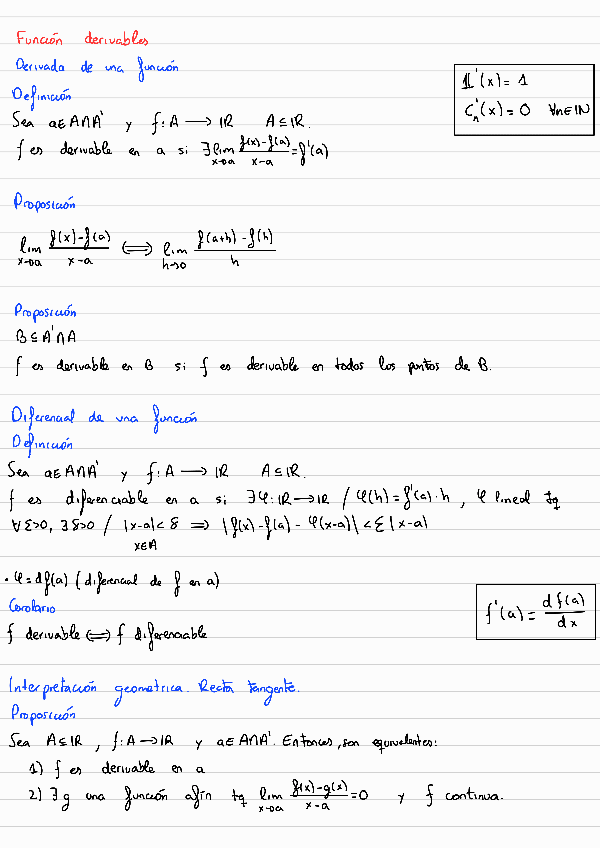 Función derivables
Derivada de una función
𝟙'(x) = 1
Cₙ'(x) = 0 ∀n∈ℕ
Definición
Sea a∈A∩A' y f: A ⟶ ℝ A⊆ℝ.
f es derivable en a si ∃ lim_{x→a} (f(x)-f(a))/(x-a) = f'(a)
Proposición
lim_{x→a} (f(x)-f(a))/(x-a) ⟺ lim_{h→0} (f(a+h)-f(h))/h
Proposición
B⊆A'∩A
f es derivable en B si f es derivable en todos los puntos de B.
Diferencial de una función
Definición
Sea a∈A∩A' y f: A ⟶ ℝ A⊆ℝ.
f es diferenciable en a si ∃φ: ℝ→ℝ / φ(h) = f'(a)·h , φ lineal tq
∀ε>0, ∃δ>0 / |x-a|<δ ⟹ |f(x)-f(a)-φ(x-a)| < ε|x-a|
x∈A
· φ = df(a) (diferencial de f en a)
Corolario
f derivable ⟺ f diferenciable
f'(a) = df(a)/dx
Interpretación geometrica. Recta tangente.
Proposición
Sea A⊆ℝ , f: A→ℝ y a∈A∩A'. Entonces, son equivalentes:
1) f es derivable en a
2) ∃ g una función afín tq lim_{x→a} (f(x)-g(x))/(x-a) = 0 y f continua.